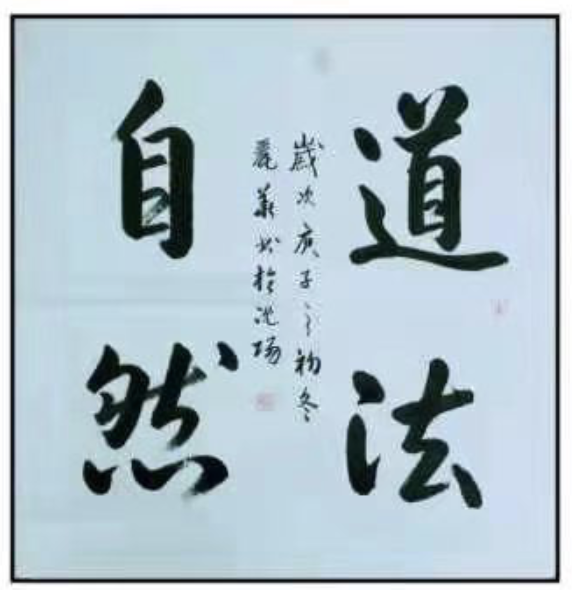 道法
自然
歲次庚子之初冬
麗華書於瀋陽